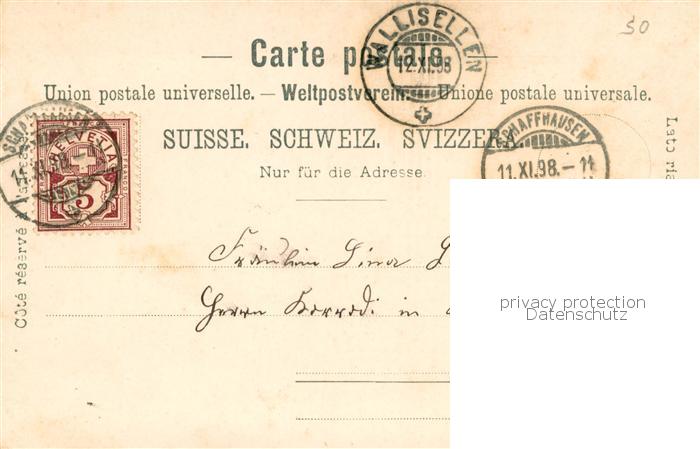 50
— Carte postale —
WALLISELLEN
12.XI.98
Union postale universelle. — Weltpostverein. — Unione postale universale.
SUISSE. SCHWEIZ. SVIZZERA.
SCHAFFHAUSEN
11.XI.98.–11
Nur für die Adresse.
HELVETIA
5
SCHAFFHAUSEN
11.XI.98.–
Côté réservé à
Lato ris
Fräulein Lina
Herrn Korrodi in
privacy protection
Datenschutz